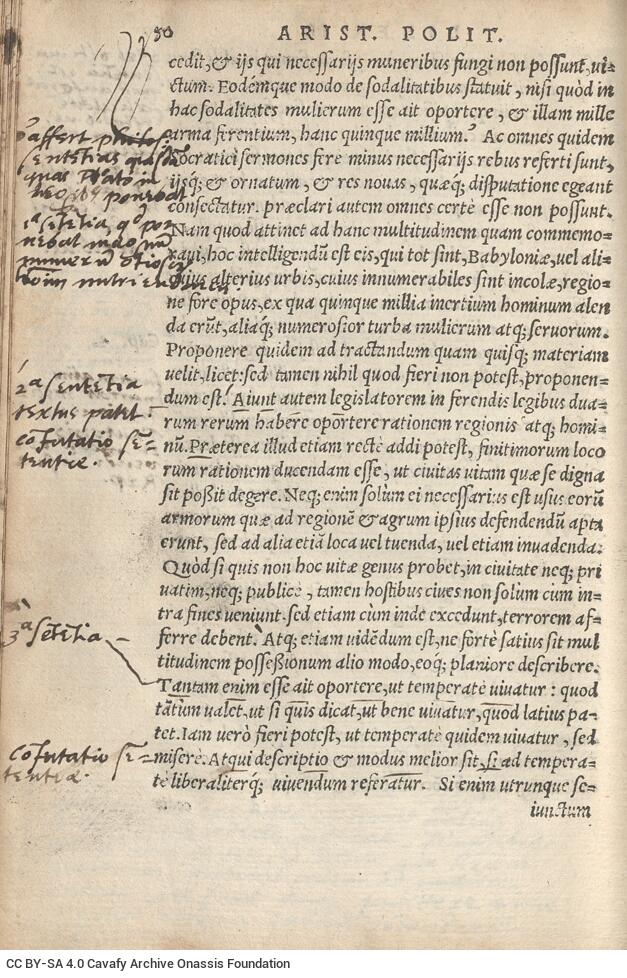 50 ARIST. POLIT.
cedit, & ijs qui necessarijs muneribus fungi non possunt, ui-
ctum. Eodémque modo de sodalitatibus statuit, nisi quòd in
hac sodalitates mulierum esse ait oportere, & illam mille
arma ferentium, hanc quinque millium. Ac omnes quidem
Socratici sermones fere minus necessarijs rebus referti sunt,
ijsq; & ornatum, & res nouas, quæq; disputatione egeant
consectatur. præclari autem omnes certè esse non possunt.
Nam quod attinet ad hanc multitudinem quam commemo-
raui, hoc intelligendũ est eis, qui tot sint, Babyloniæ, uel ali-
cuius alterius urbis, cuius innumerabiles sint incolæ, regio-
ne fore opus, ex qua quinque millia inertium hominum alen
da erũt, aliaq́; numerosior turba mulierum atq; seruorum.
Proponere quidem ad tractandum quam quisq; materiam
uelit, licet: sed tamen nihil quod fieri non potest, proponen-
dum est. Aiunt autem legislatorem in ferendis legibus dua-
rum rerum habere oportere rationem regionis atq; homi-
nũ. Præterea illud etiam rectè addi potest, finitimorum loco
rum rationem ducendam esse, ut ciuitas uitam quæ se digna
sit poßit degere. Neq; enim solùm ei necessarius est usus eorũ
armorum quæ ad regionẽ & agrum ipsius defendendũ apta
erunt, sed ad alia etiã loca uel tuenda, uel etiam inuadenda.
Quòd si quis non hoc uitæ genus probet, in ciuitate neq; pri
uatim, neq; publicè, tamen hostibus ciues non solùm cùm in-
tra fines ueniunt. sed etiam cùm inde excedunt, terrorem af-
ferre debent. Atq; etiam uidẽdum est, ne fortè satius sit mul
titudinem posseßionum alio modo, eoq; planiore describere.
Tantam enim esse ait oportere, ut temperatè uiuatur: quod
tãtũm ualet, ut si quis dicat, ut bene uiuatur, quod latius pa-
tet. Iam uerò fieri potest, ut temperatè quidem uiuatur, sed
miserè. Atqui descriptio & modus melior sit, si ad tempera-
tè liberaliterq́; uiuendum referatur. Si enim utrunque se-
iunctum
2ª sentẽtia
textus patet.
cõfutatio sẽ-
tentiæ.
3ª sẽtẽtia
Cõfutatio sẽ-
tentiæ.
CC BY-SA 4.0 Cavafy Archive Onassis Foundation